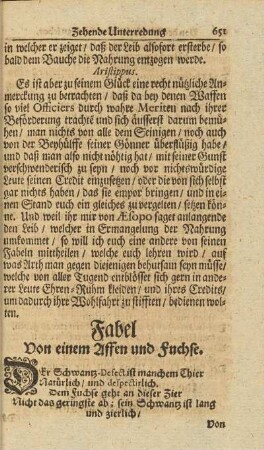 Zehende Unterredung 651
in welcher er zeiget / daß der Leib alsofort ersterbe / so
bald dem Bauche die Nahrung entzogen werde.
Aristippus.
Es ist aber zu seinem Glück eine recht nützliche An-
merckung zu betrachten / daß da bey denen Waffen
so viel Officiers durch wahre Meriten nach ihrer
Beförderung trachtē und sich äusserst darum bemü-
hen / man nichts von alle dem Seinigen / noch auch
von der Beyhülffe seiner Gönner überflüßig habe /
und daß man also nicht nöhtig hat / mit seiner Gunst
verschwenderisch zu seyn / noch vor nichtswürdige
Leute seinen Credit einzusetzen / oder die von sich selbst
gar nichts haben / das sie empor bringen / und in ei-
nen Stand euch ein gleiches zu vergelten / setzen kön-
ne. Und weil ihr mir von Æsopo saget anlangende
den Leib / welcher in Ermangelung der Nahrung
umkommet / so will ich euch eine andere von seinen
Fabeln mittheilen / welche euch lehren wird / auf
was Arth man gegen diejenigen behutsam seyn müsse /
welche von aller Tugend entblösset sich gern in ande-
rer Leute Ehren-Ruhm kleiden / und ihres Credits /
um dadurch ihre Wohlfahrt zu stifften / bedienen wol-
ten.
Fabel
Von einem Affen und Fuchse.
DEr Schwantz-Defect ist manchem Thier
Natürlich / und despectirlich.
Dem Fuchse geht an dieser Zier
Nicht das geringste ab; sein Schwantz ist lang
und zierlich /
Von